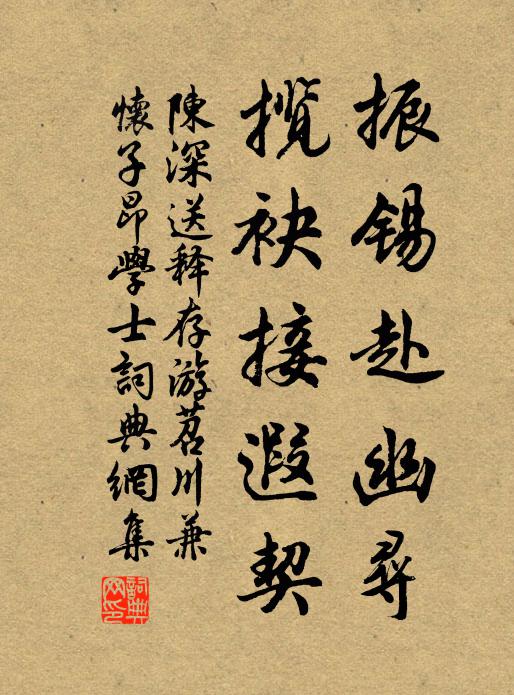 振锡赴幽尋
揽袂接遐契
陳深送释存游苕川兼
懷子昂學士詞典網集
詞典网印